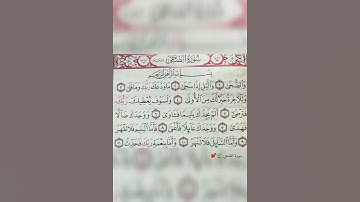 سُورَةُ الضُّحَىٰ
بِسْمِ اللَّهِ الرَّحْمَٰنِ الرَّحِيمِ
وَالضُّحَىٰ ١ وَاللَّيْلِ إِذَا سَجَىٰ ٢ مَا وَدَّعَكَ رَبُّكَ وَمَا قَلَىٰ ٣
وَلَلْآخِرَةُ خَيْرٌ لَّكَ مِنَ الْأُولَىٰ ٤ وَلَسَوْفَ يُعْطِيكَ رَبُّكَ
فَتَرْضَىٰ ٥ أَلَمْ يَجِدْكَ يَتِيمًا فَآوَىٰ ٦ وَوَجَدَكَ ضَالًّا
فَهَدَىٰ ٧ وَوَجَدَكَ عَائِلًا فَأَغْنَىٰ ٨ فَأَمَّا الْيَتِيمَ فَلَا تَقْهَرْ
٩ وَأَمَّا السَّائِلَ فَلَا تَنْهَرْ ١٠ وَأَمَّا بِنِعْمَةِ رَبِّكَ فَحَدِّثْ ١١
سورة الضحى